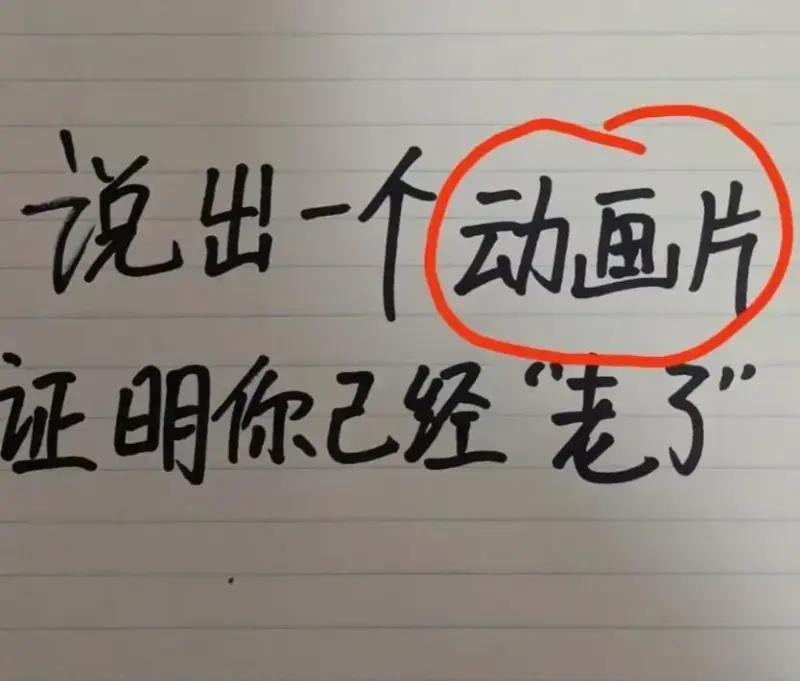 说出一个动画片
证明你已经“老了”